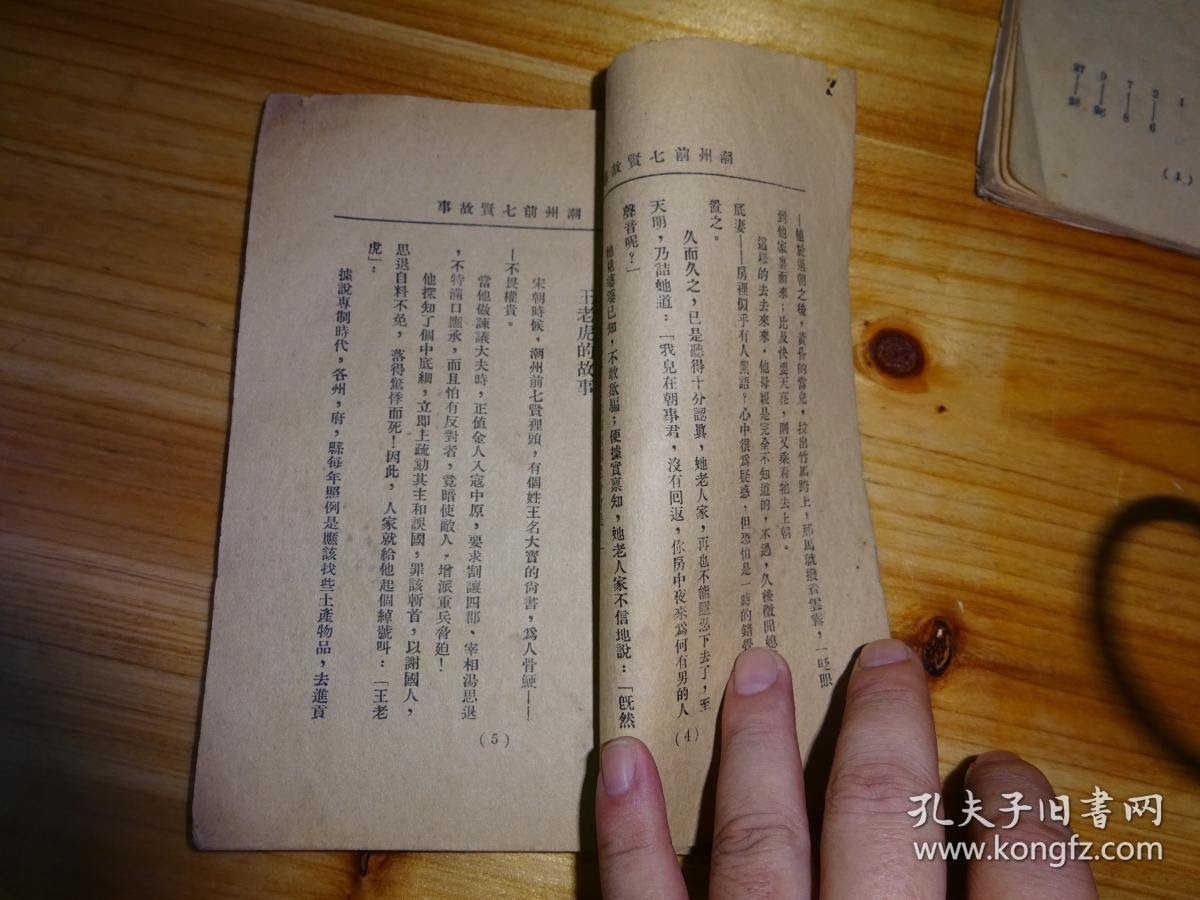 潮州前七賢故
—她於退朝之後，黃昏的當兒，拉出竹馬跨上，那馬就撥着雲霧，一眨眼
到他家裏而來；比及快要天亮，則又乘着牠去上朝。
這樣的去去來來，他母親是完全不知道的，不過，久後微聞媳
底妻——房裡似乎有人絮語？心中很爲疑惑，但恐怕是一時的錯覺
置之。
久而久之，已是聽得十分認眞，她老人家，再也不能隱忍下去了，至
天明，乃詰她道：「我兒在朝事君，沒有回返，你房中夜來爲何有男的人
聲音呢？」
她見婆婆已知，不敢欺騙；便據實禀知，她老人家不信地說：「旣然
(4)
潮州前七賢故事
王老虎的故事
宋朝時候，潮州前七賢裡頭，有個姓王名大寶的尙書，爲人骨鯁——
—不畏權貴。
當他做諫議大夫時，正值金人入寇中原，要求割讓四郡、宰相湯思退
，不特滿口應承，而且怕有反對者，竟暗使敵人，增派重兵脅迫！
他探知了個中底細，立即上疏劾其主和誤國，罪該斬首，以謝國人，
思退自料不免，落得驚悸而死！因此，人家就給他起個綽號叫：「王老
虎」：
據說專制時代，各州，府，縣每年照例是應該找些土產物品，去進貢
(5)
27—28
9—26
7—6
2—6
1
(1)
孔夫子旧書网
www.kongfz.com